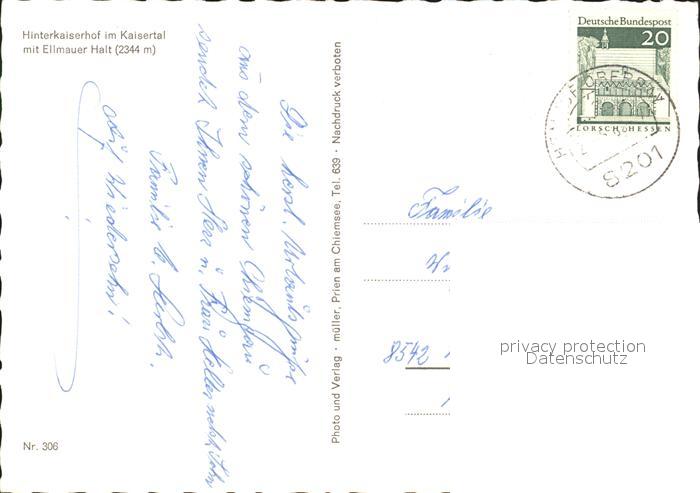 Hinterkaiserhof im Kaisertal
mit Ellmauer Halt (2344 m)
Die herzl. Urlaubsgrüße
aus dem schönen Chiemgau
sendet Ihnen Herr u. Frau
Familie
Auf Wiedersehn!
Nr. 306
Photo und Verlag · müller, Prien am Chiemsee, Tel. 639 · Nachdruck verboten
Deutsche Bundespost
20
LORSCH/HESSEN
8201
Familie
8542
privacy protection
Datenschutz